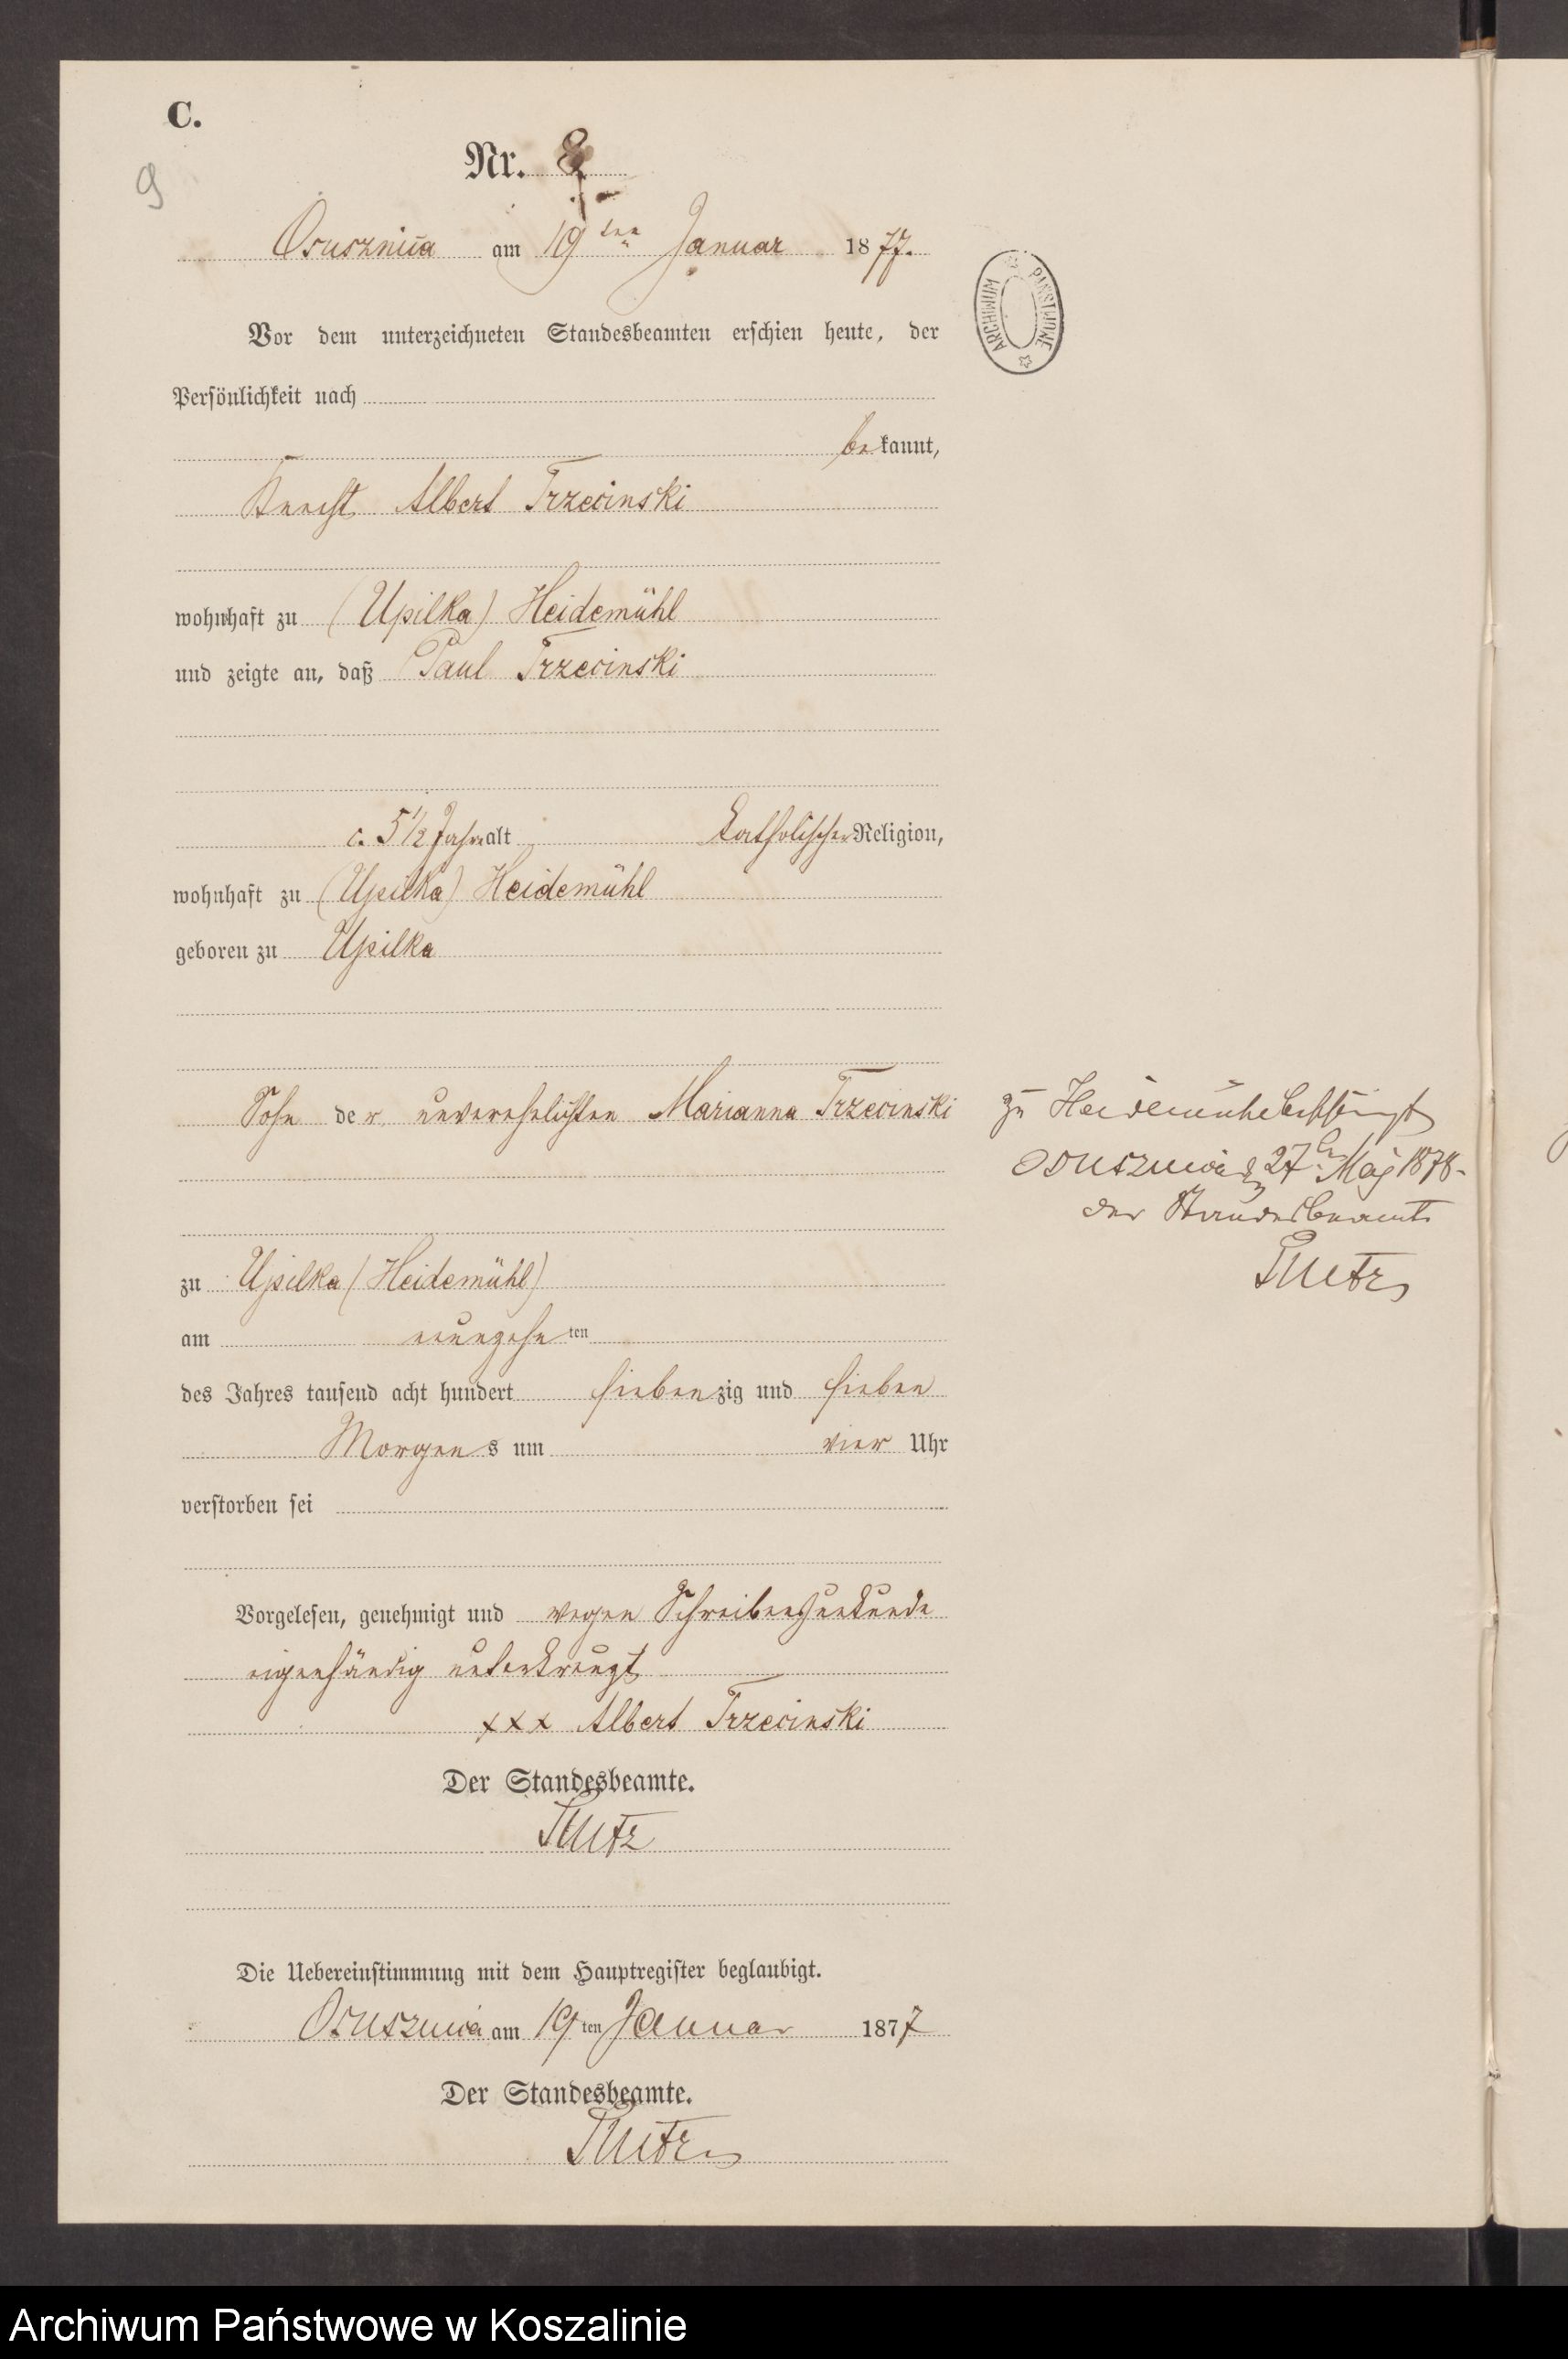 C.
Nr. 8
9
Osusznica am 19ten Januar 1877.
Vor dem unterzeichneten Standesbeamten erschien heute, der
Persönlichkeit nach
bekannt,
Knecht Albert Trzecinski
wohnhaft zu (Upilka) Heidemühl
und zeigte an, daß Paul Trzecinski
c. 5 1/2 Jahre alt katholischer Religion,
wohnhaft zu (Upilka) Heidemühl
geboren zu Upilka
Sohn der unverehelichten Marianna Trzecinski
zu Upilka (Heidemühl)
am neunzehnten
des Jahres tausend acht hundert siebenzig und sieben
Morgens um vier Uhr
verstorben sei
Vorgelesen, genehmigt und wegen Schreibensunkunde
eigenhändig unterkreuzt
xxx Albert Trzecinski
Der Standesbeamte.
Die Uebereinstimmung mit dem Hauptregister beglaubigt.
Osusznica am 19ten Januar 1877
Der Standesbeamte.
zu Heidemühl
Osusznica d 27ten Maj 1878.
der Standesbeamte
ARCHIWUM PAŃSTWOWE
Archiwum Państwowe w Koszalinie